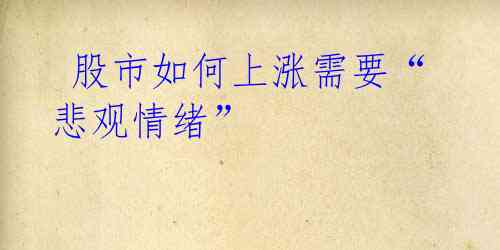 股市如何上涨需要“
悲观情绪”